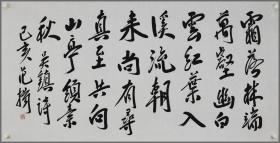 霜落林端
萬壑幽白
雲紅葉入
溪流朝
来尚有尋
真至共向
山亭領素
秋 吴鎮詩
己亥